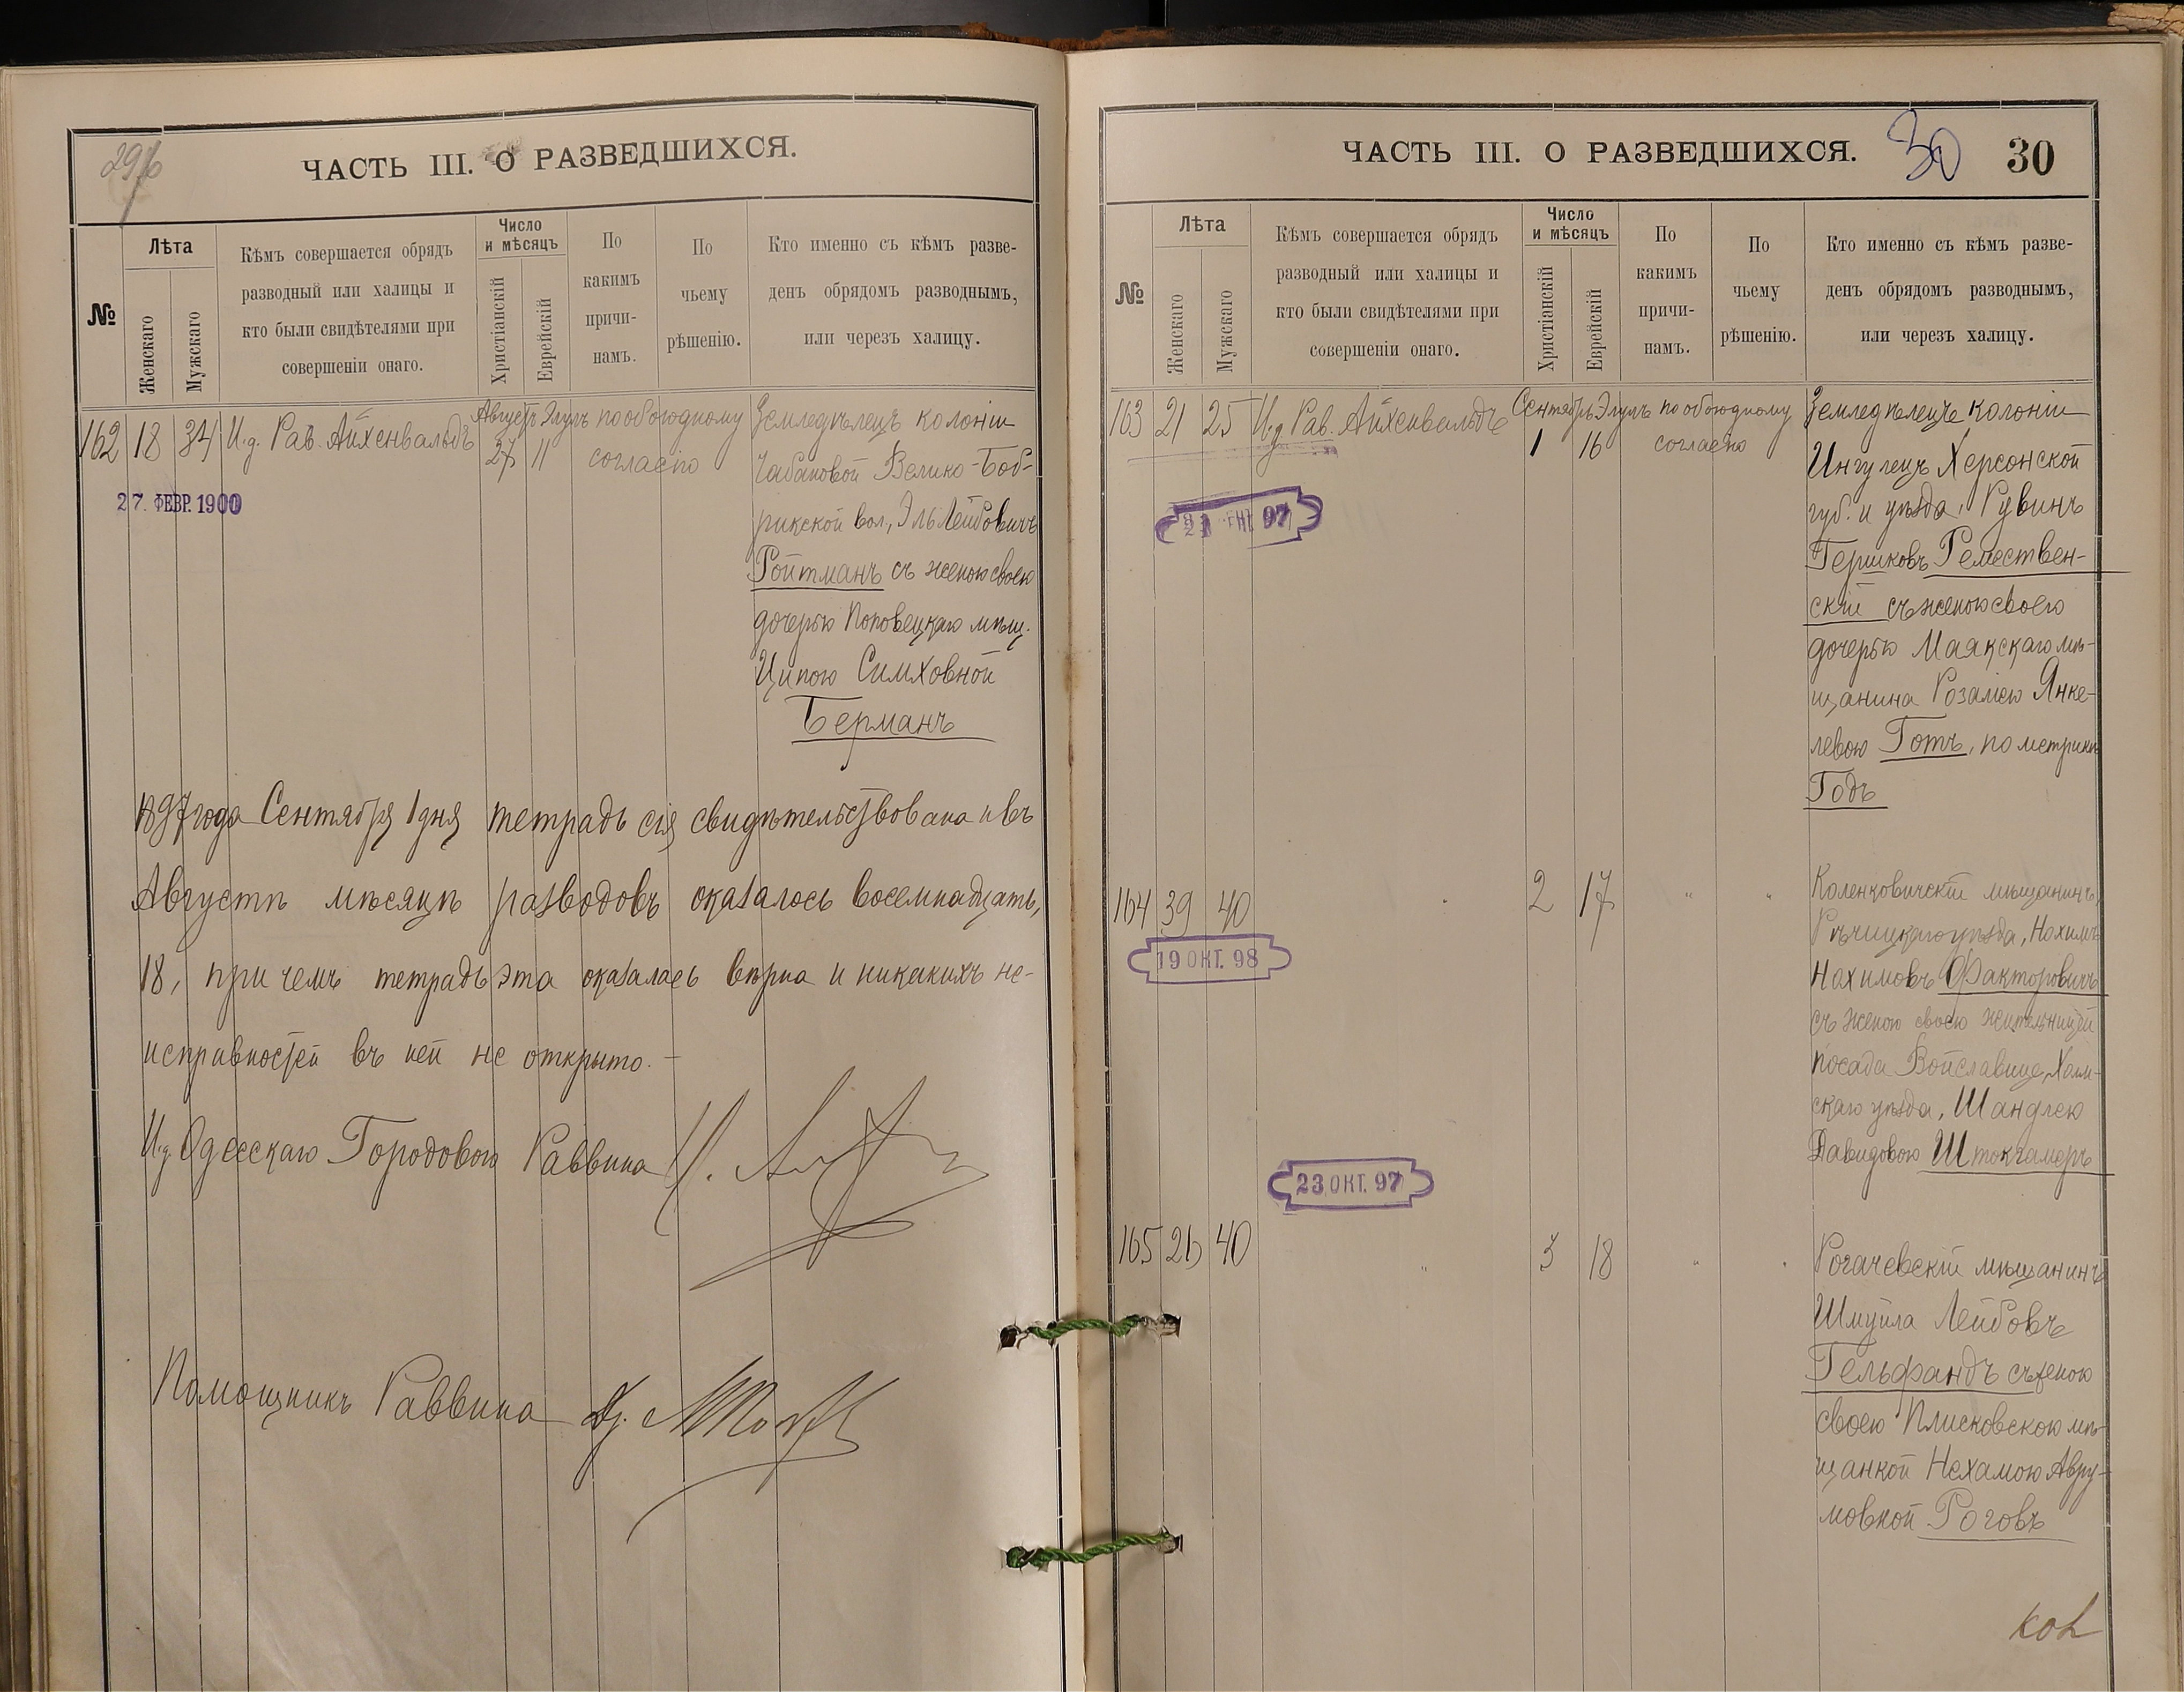 29 б
ЧАСТЬ III. О РАЗВЕДШИХСЯ.
№
Лѣта
Женскаго
Мужскаго
Кѣмъ совершается обрядъ
разводный или халицы и
кто были свидѣтелями при
совершеніи онаго.
Число
и мѣсяцъ
Христіанскій
Еврейскій
По
какимъ
причи-
намъ.
По
чьему
рѣшенію.
Кто именно съ кѣмъ разве-
денъ обрядомъ разводнымъ,
или черезъ халицу.
162 18 34 И.д. Рав. Айхенвальдъ
Август 27
Элулъ 11
по обоюдному
согласію
27. ФЕВР. 1900
Земледѣлецъ колоніи
Чабановой Велико-Боб-
рикской вол, Эль Лейбовичъ
Ройтманъ съ женою своею
дочерью Поповецкаго мѣщ.
Ципою Симховной
Берманъ
1897 года Сентября 1 дня тетрадь сія свидѣтельствована и въ
Августѣ мѣсяцѣ разводовъ оказалось восемнадцать,
18, при чемъ тетрадь эта оказалась вѣрна и никакихъ не-
исправностей въ ней не открыто.-
И.д Одесскаго Городового Раввина
Помощникъ Раввина
ЧАСТЬ III. О РАЗВЕДШИХСЯ.
30 30
№
Лѣта
Женскаго
Мужскаго
Кѣмъ совершается обрядъ
разводный или халицы и
кто были свидѣтелями при
совершеніи онаго.
Число
и мѣсяцъ
Христіанскій
Еврейскій
По
какимъ
причи-
намъ.
По
чьему
рѣшенію.
Кто именно съ кѣмъ разве-
денъ обрядомъ разводнымъ,
или черезъ халицу.
163 21 25 И.д Рав. Айхенвальдъ
Сентябрь 1
Элулъ 16
по обоюдному
согласію
97
Земледѣлецъ колоніи
Ингулецъ Херсонской
губ. и уѣзда, Рувинъ
Гершковъ Ремествен-
скій съ женою своею
дочерью Маякскаго мѣ-
щанина Розаліею Янке-
левою Готъ, по метрикѣ
Годъ
164 39 40 " 2 17 " "
19 ОКТ. 98
Коленковичскій мѣщанинъ,
Рѣчицкаго уѣзда, Нохимъ
Нохимовъ Факторовичъ
съ женою своею жительницей
посада Войславице, Холм-
скаго уѣзда, Шандлею
Давидовою Штокгамеръ
23 ОКТ. 97
165 26 40 " 3 18 " "
Рогачевскій мѣщанинъ
Шмуйла Лейбовъ
Гельфандъ съ женою
своею Плисковскою мѣ-
щанкой Нехамою Авру-
мовной Роговъ